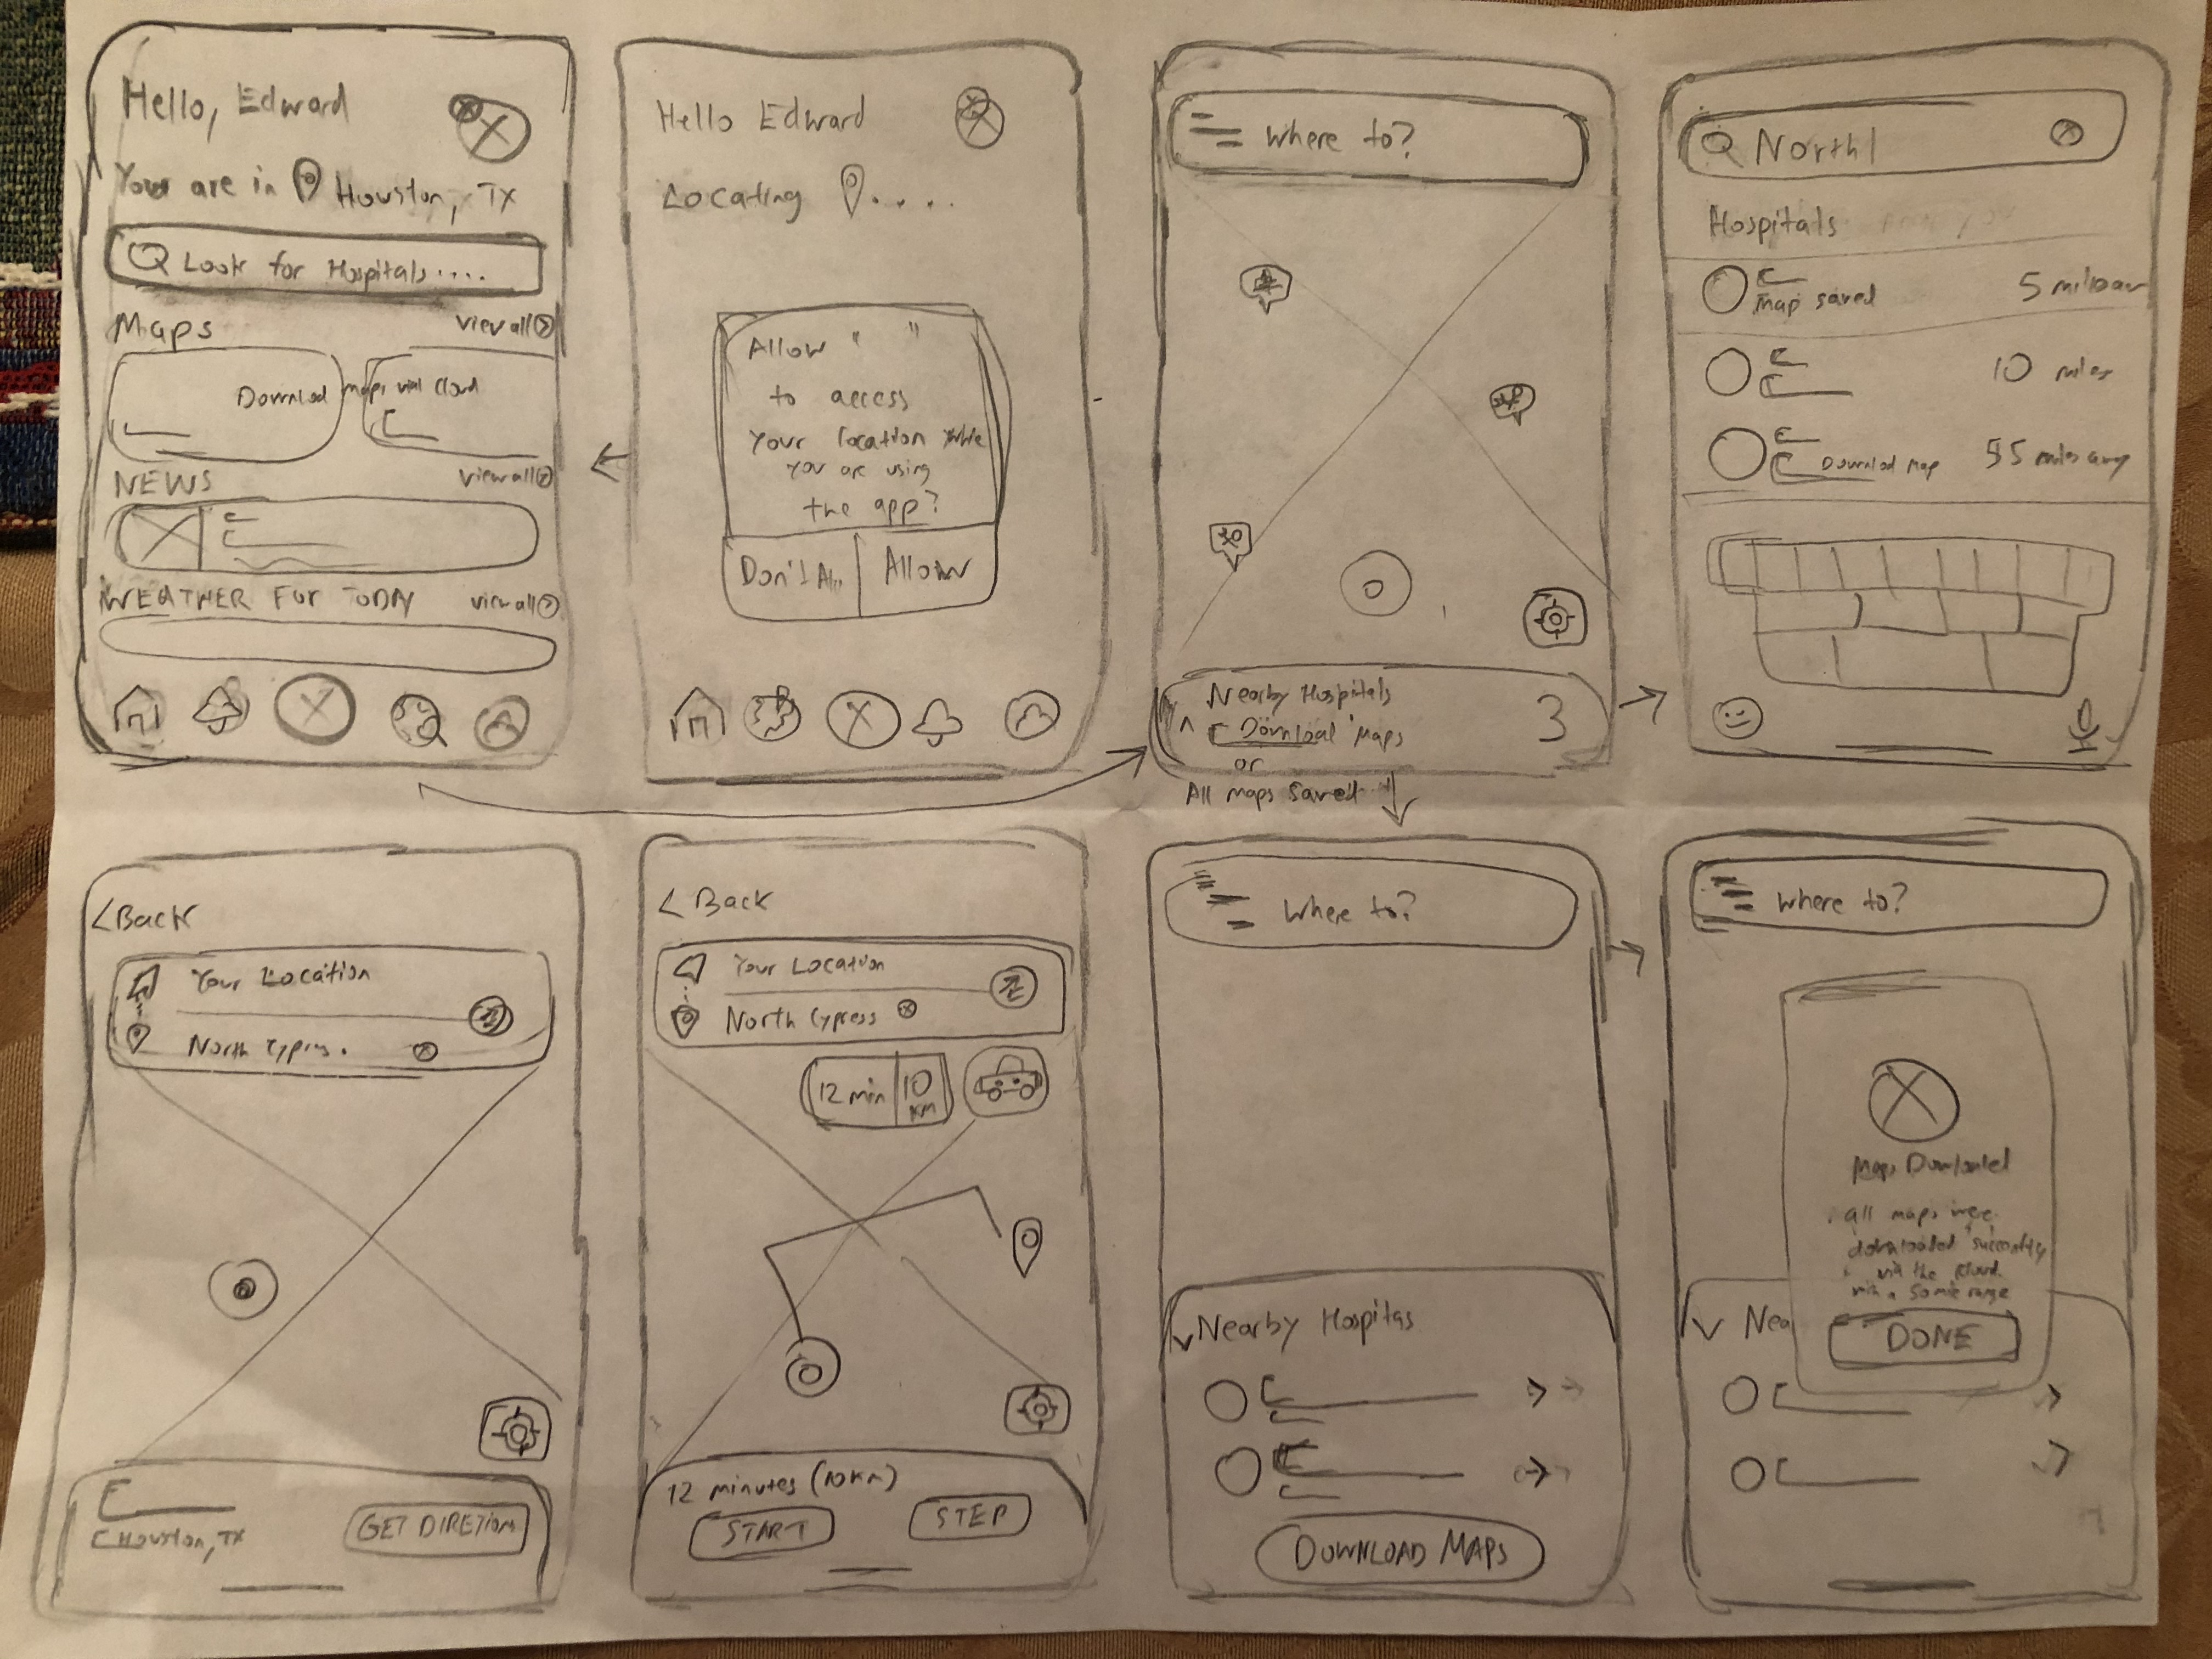 Hello, Edward
Your are in Houston, TX
Look for Hospitals.....
Maps
View all
Downlod maps with Cloud
NEWS
View all
WEATHER FOR TODAY
View all
Hello Edward
Locating ....
Allow " "
to access
Your location while
you are using
the app?
Don't
Allow
Where to?
Nearby Hospitals
Download Maps
or
All maps saved
3
North|
Hospitals
Map saved
5 miles
10 miles
Downlod Map
55 miles away
<Back
Your Location
North
Houston, TX
GET DIRETIONS
<Back
Your Location
North Cypress
12 min
10 KM
12 minutes (10 Km)
START
STEP
Where to?
Nearby Hospitas
DOWNLOAD MAPS
Where to?
Maps Downloaded
all maps were
downloaded
the Cloud
range
Nea
DONE